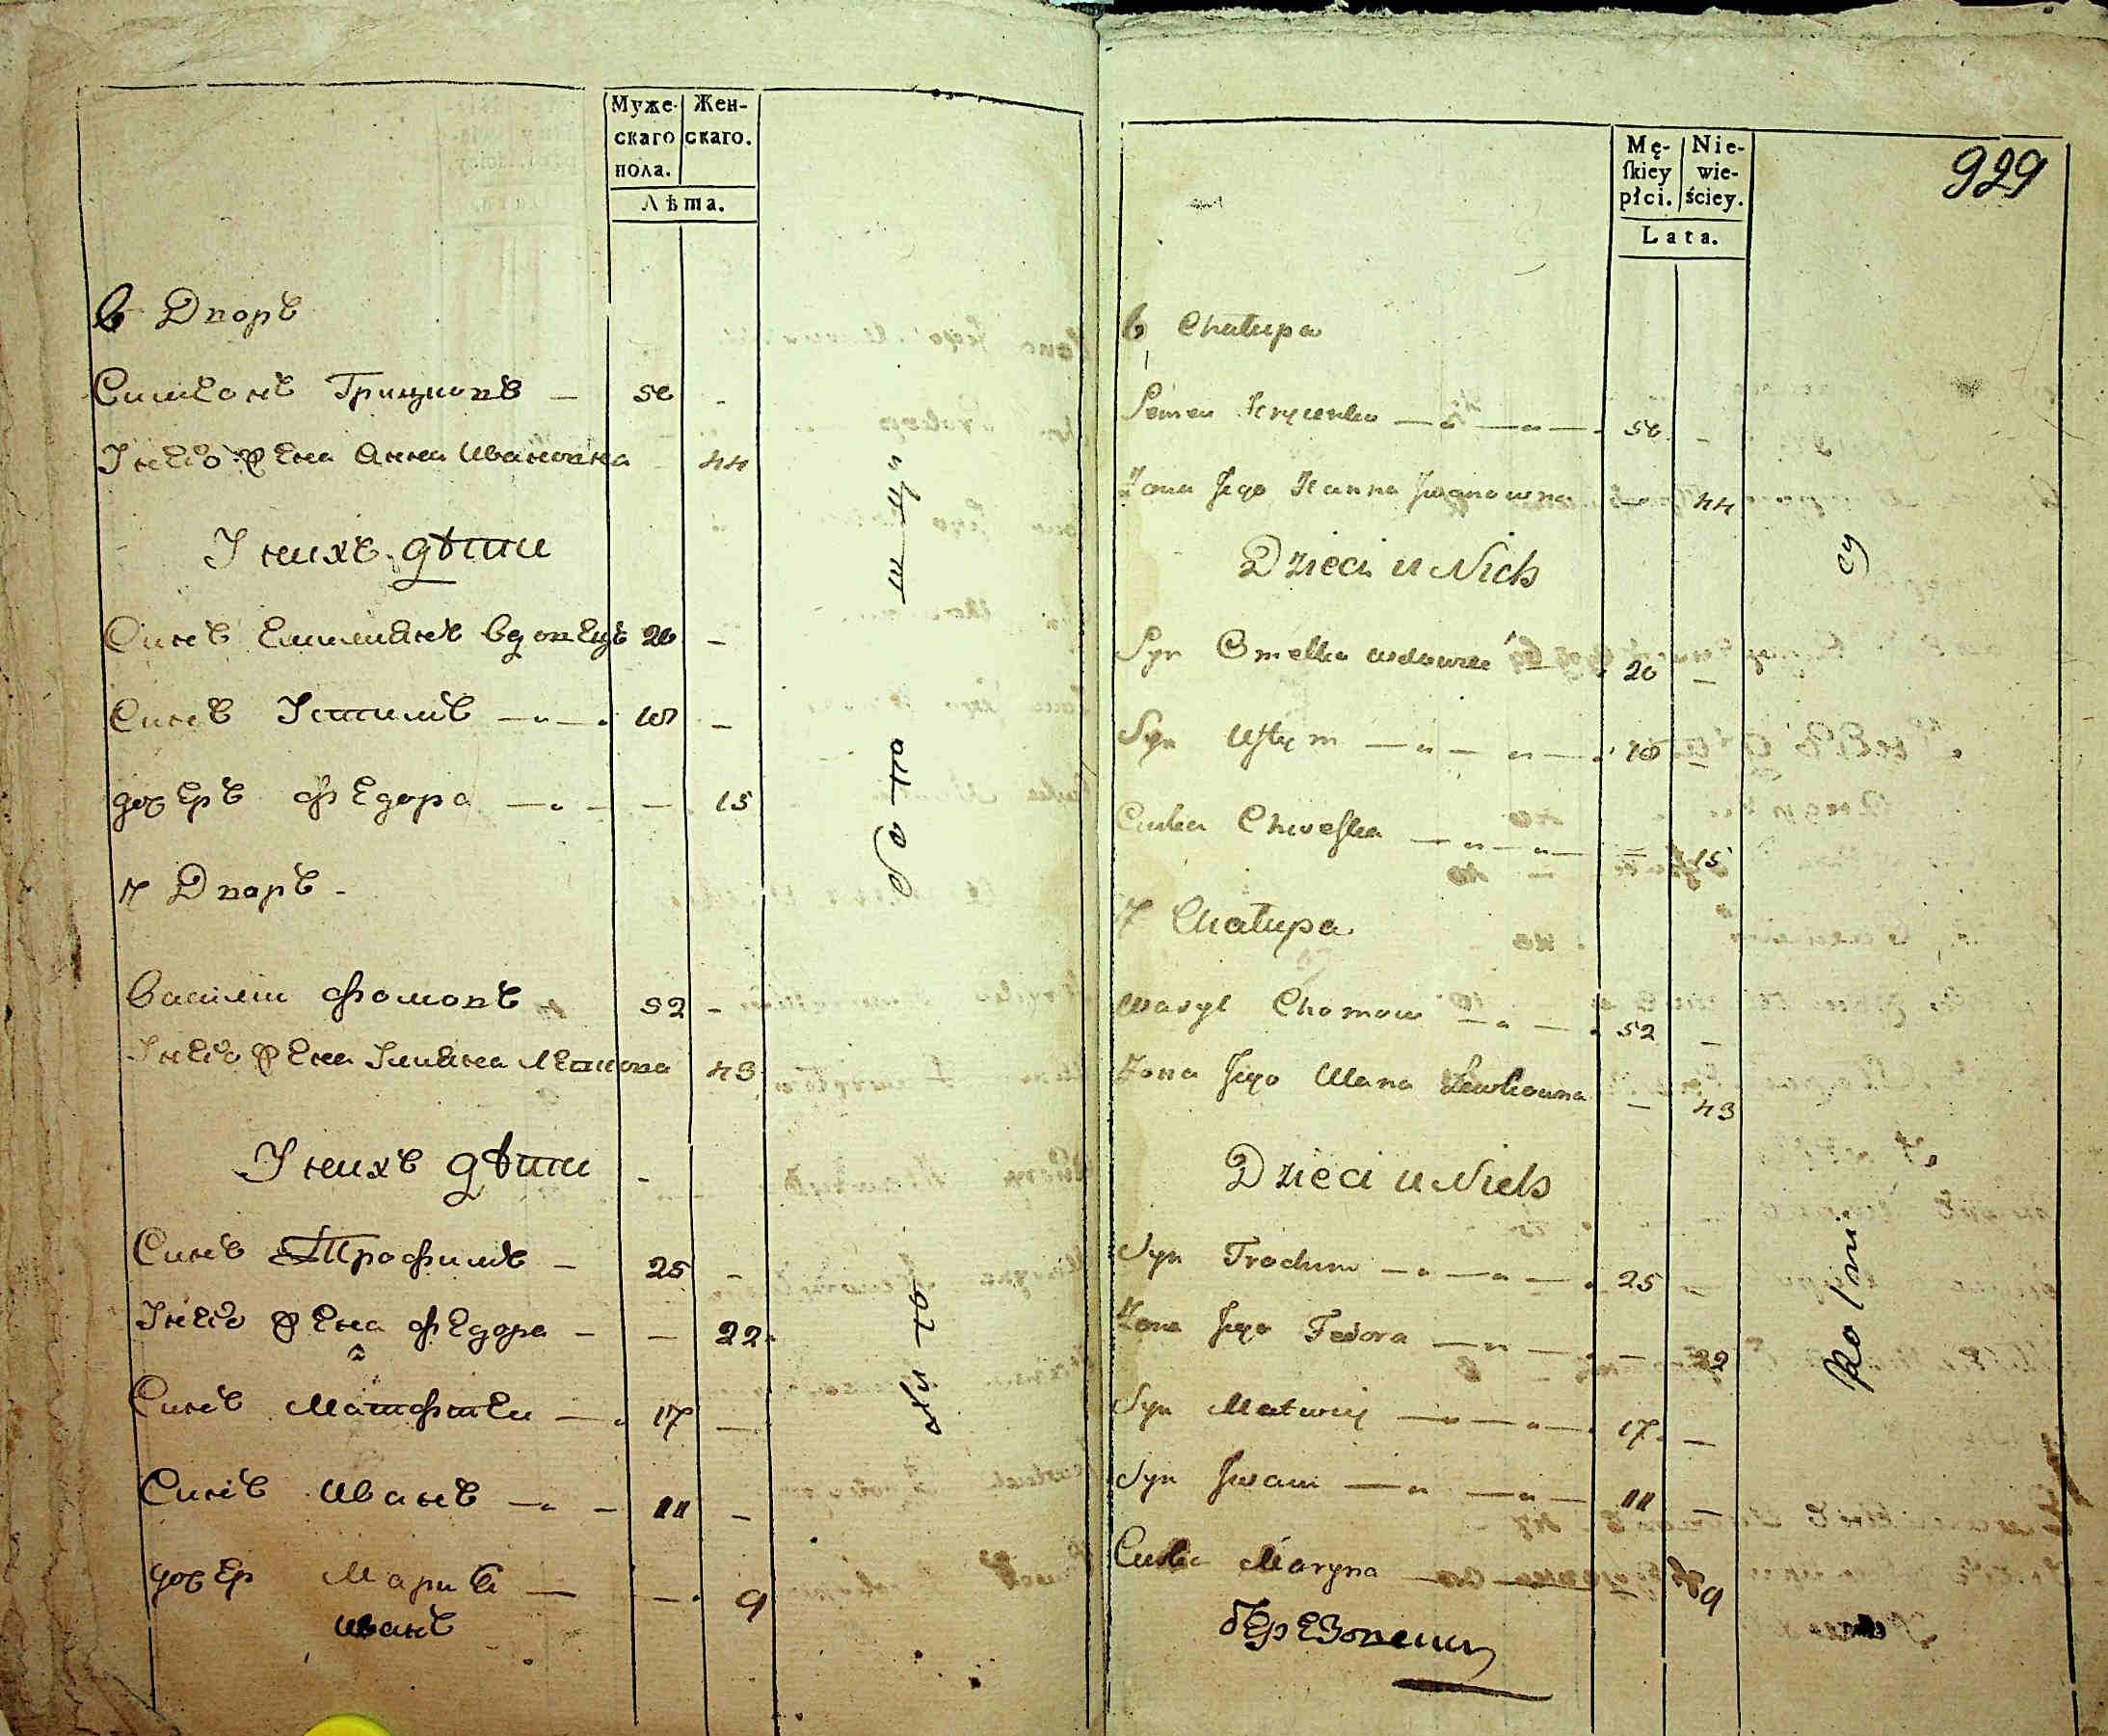 Муже- Жен-
скаго скаго.
пола.
Лѣта.
6 Дворъ
Симеонъ Грицновъ — 56 -
У него жена Анна Иванов̾на - 44
У нихъ дѣти
Синъ Емилиянъ вдовецъ 26 -
Синъ Устимъ — 18 -
дочеръ Федора — - 15
7 Дворъ -
Василіи Фомовъ 52 -
У него жена Улияна Левкова 43
У нихъ дѣти -
Синъ Трофимъ - 25 -
У него жена Федора - - 22
Синъ Матфѣеи — 17 -
Синъ Иванъ — 11 -
дочер Мария — - 9
Иванъ
929
Mę- Nie-
ſkiey wie-
płci. ściey.
Lata.
6 Chałupa
Semen Hrycenko — 56 -
Żona Jego Hanna Jwanowna - 44
Dzieci u Nich
Syn Omelko wdowiec — 26 -
Syn Uſtym — 18 -
Curka Chweſka — - 15
7 Chałupa
Wasyl Chomow — 52 -
Żona Jego Ulana Lewkowna - 43
Dzieci u Nich
Syn Trochim — 25 -
Żona Jego Fedora — - 22
Syn Matwiy — 17 -
Syn Jwan — 11 -
Curka Maryna — 9
березовени